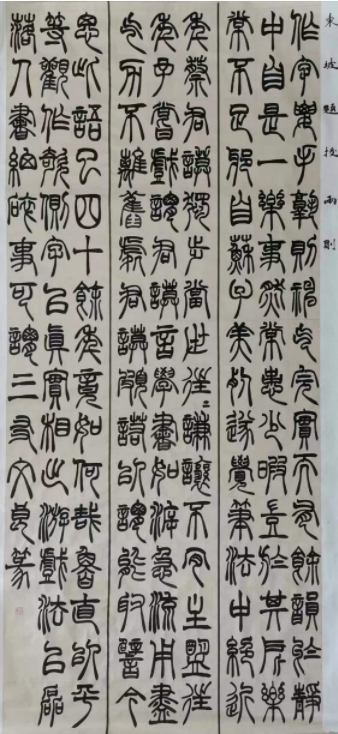 東坡題跋兩則
作字要手熟則神气完實而有餘韻於靜
中自是一樂事然常患少暇豈於其所樂
常不足耶自蘇子美死遂覺筆法中絕近
年蔡君謨獨步當世往往謙讓不肯主盟往
年予嘗戲謂君謨言學書如泝急流用盡
气力不離舊處君謨頗諾以謂能取譬今
思此語已四十餘年竟如何哉魯直以平
等觀作欹側字以真實相出游戲法以磊
落人書細碎事可謂三反文篆